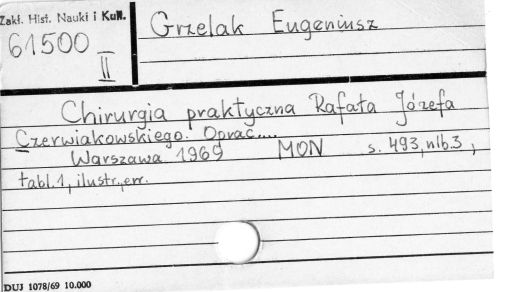 Zakł. Hist. Nauki i Kult.
61500
II
Grzelak Eugeniusz
Chirurgia praktyczna Rafała Józefa
Czerwiakowskiego. Oprac....
Warszawa 1969 MON s. 493, nlb. 3,
tabl. 1, ilustr., err.
DUJ 1078/69 10.000